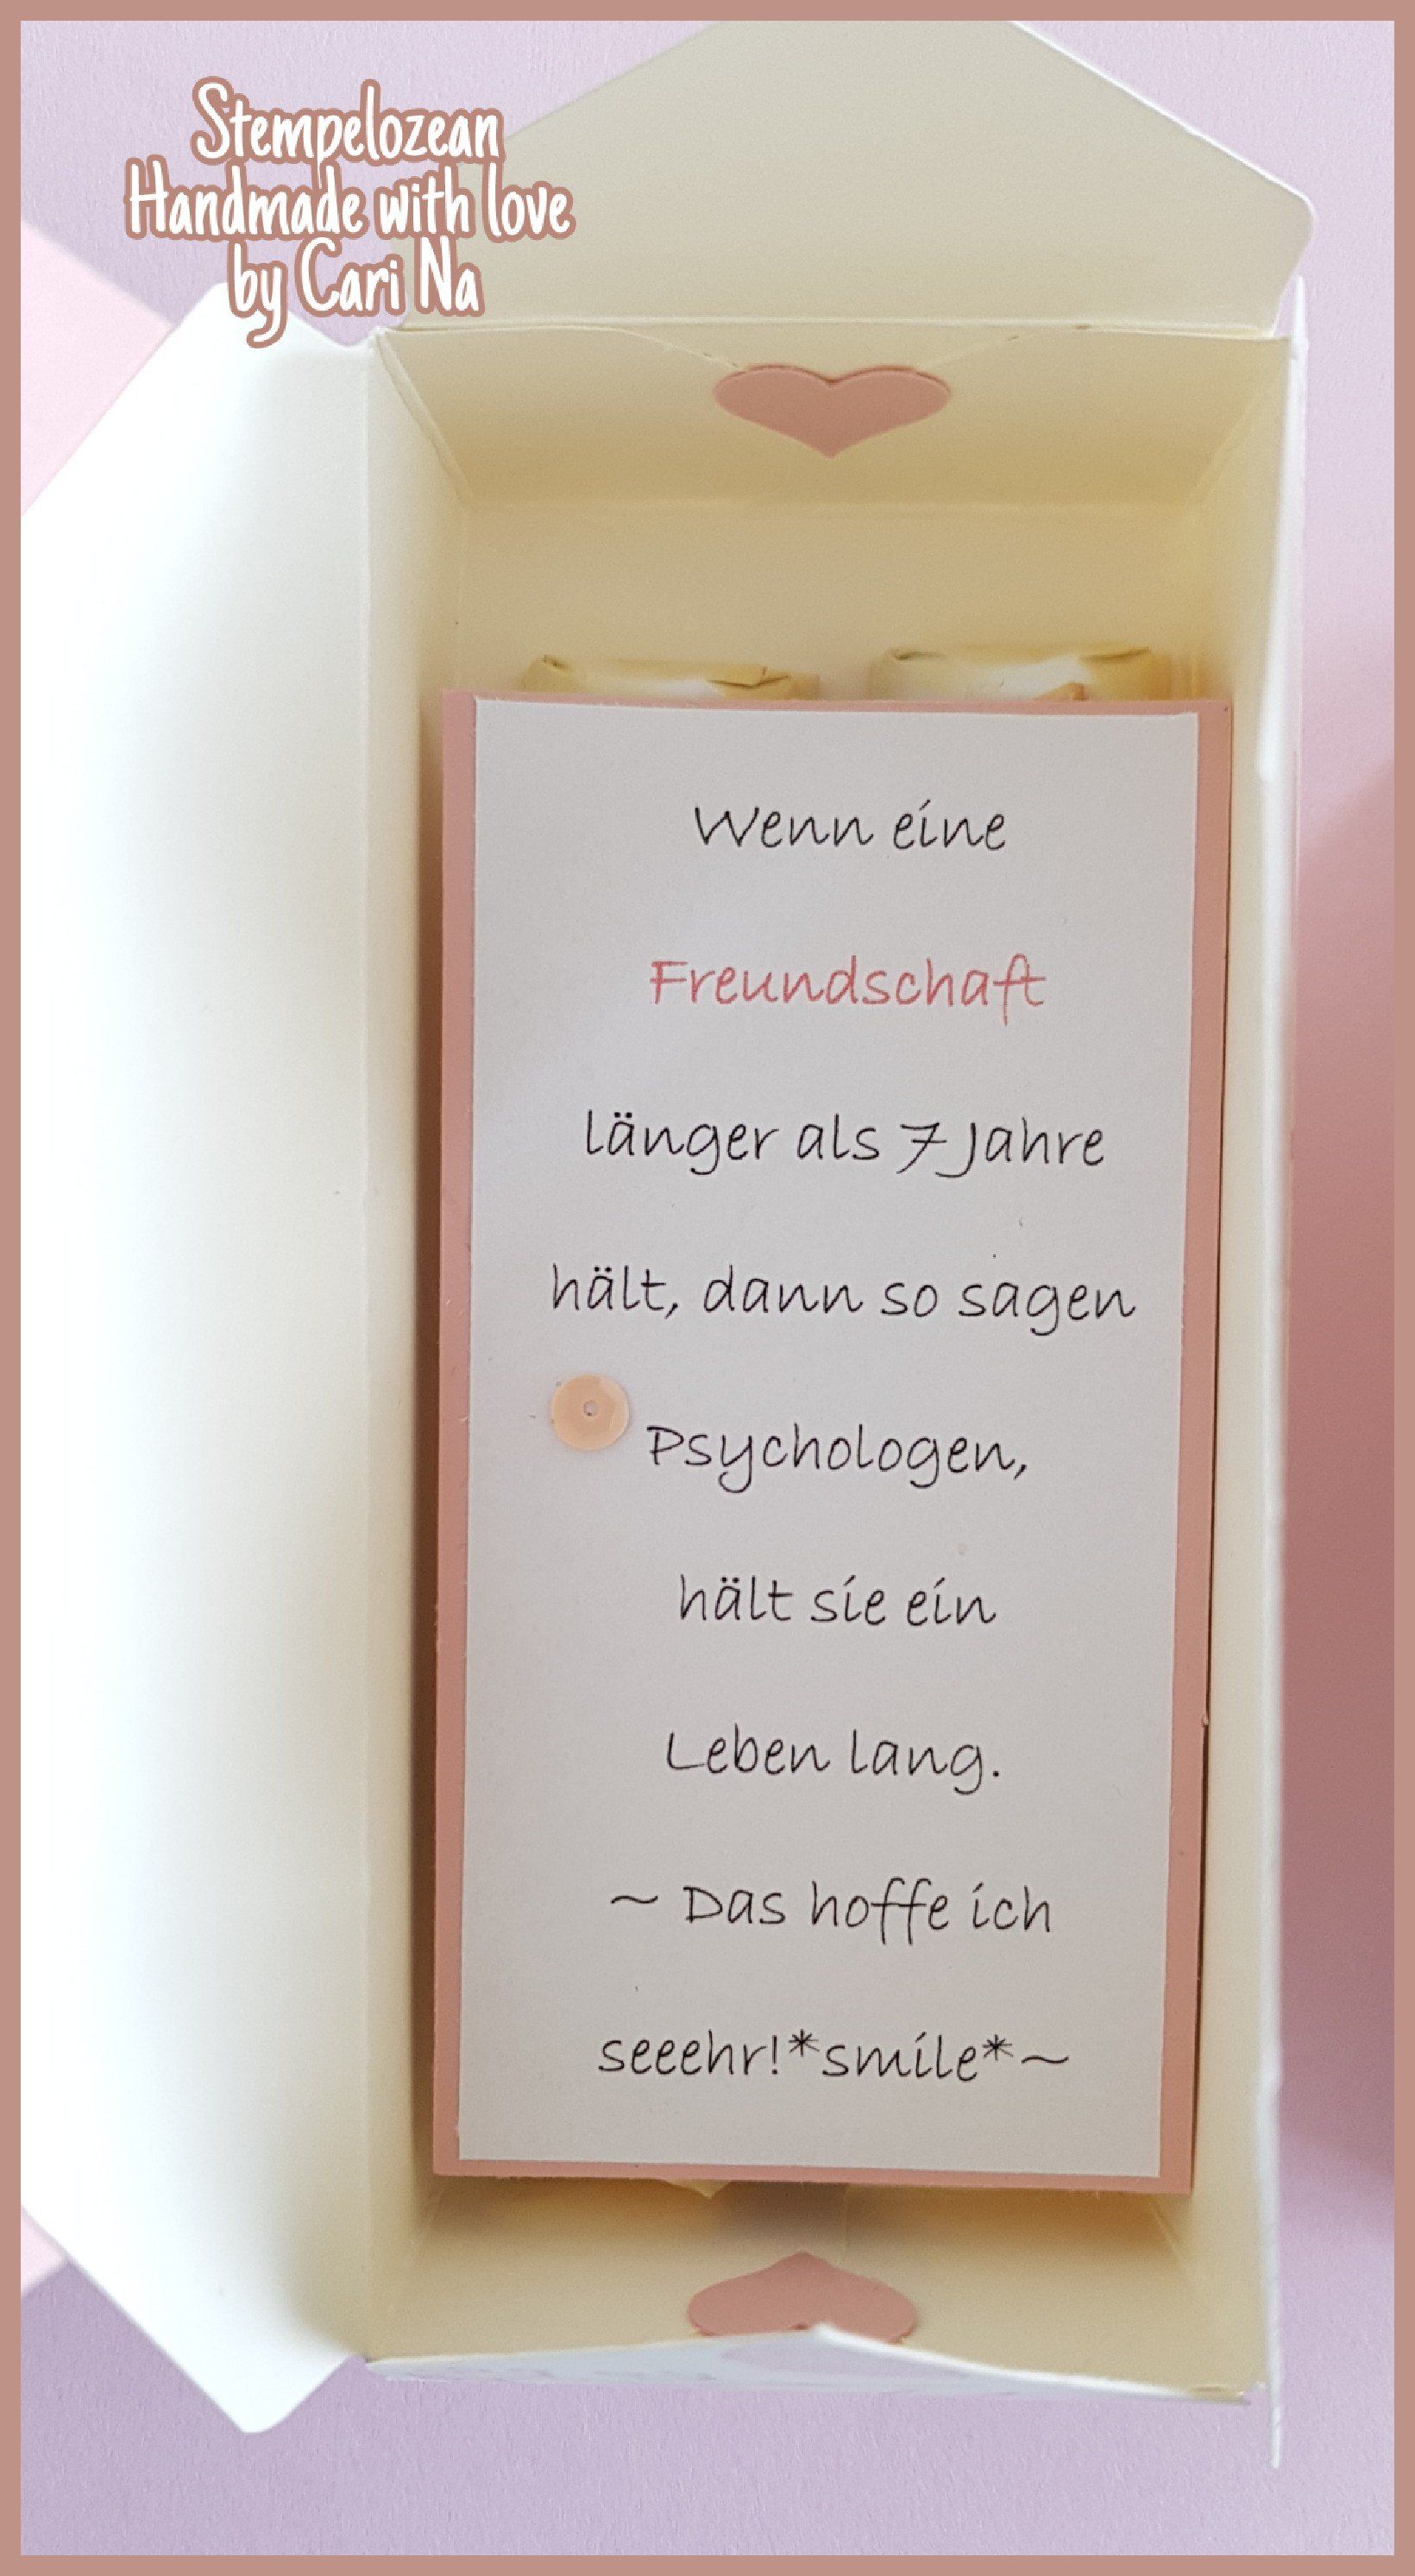 Stempelozean
Handmade with love
by Cari Na
Wenn eine
Freundschaft
länger als 7 Jahre
hält, dann so sagen
Psychologen,
hält sie ein
Leben lang.
~ Das hoffe ich
seeehr!*smile*~